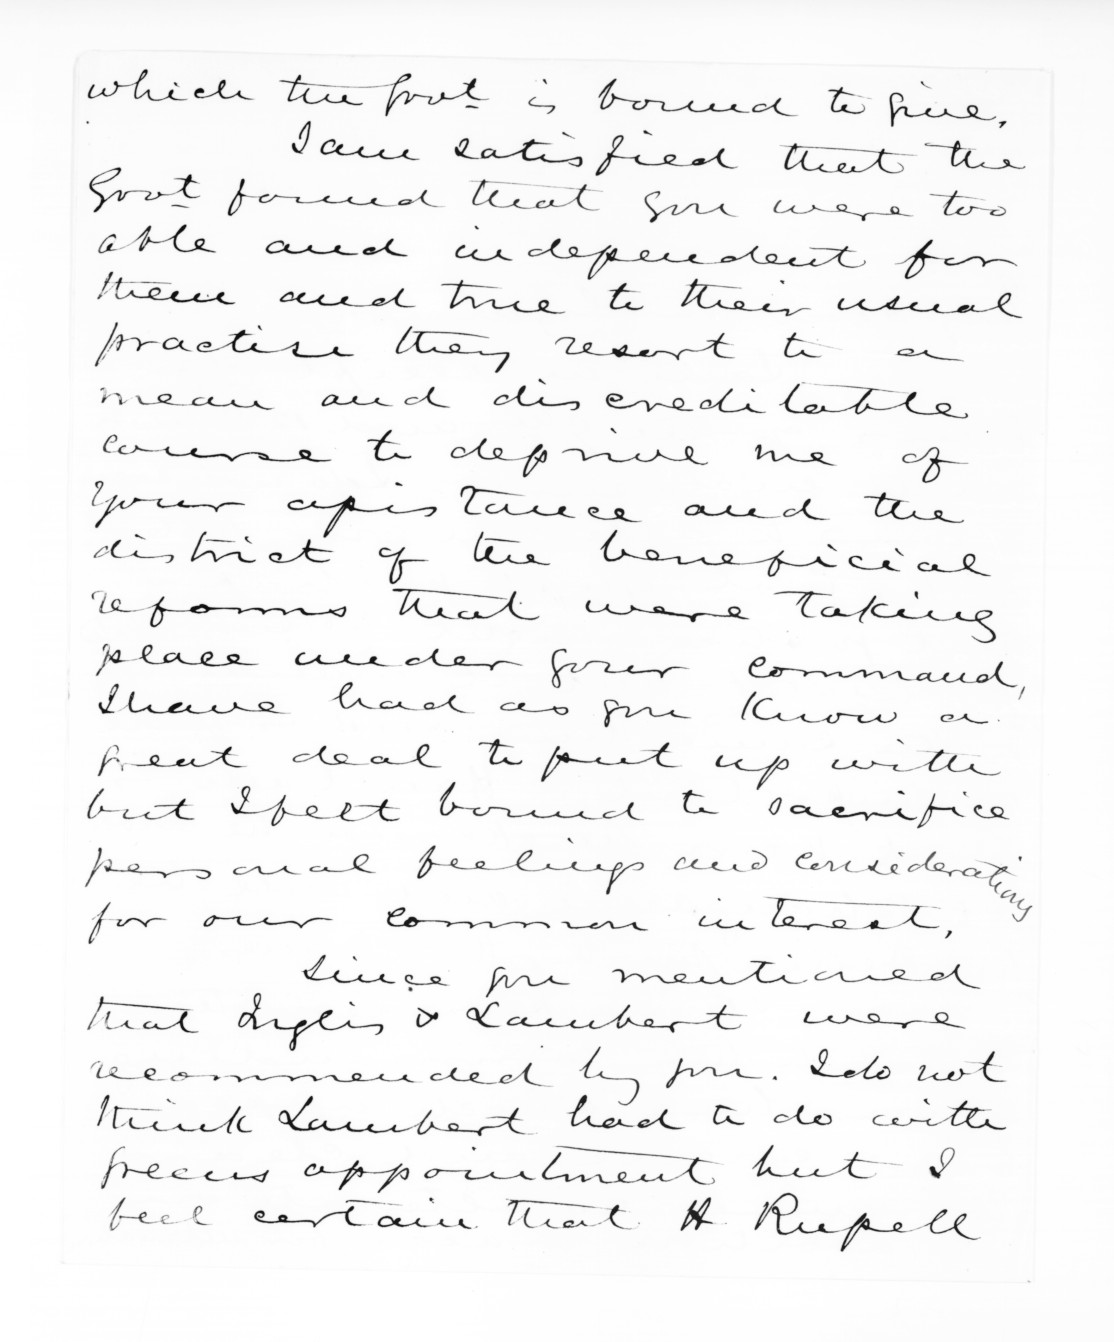 which the Govt is bound to give.
I am satisfied that the
Govt found that you were too
able and independent for
them and true to their usual
practise they resort to a
mean and discreditable
course to deprive me of
your assistance and the
district of the beneficial
reforms that were taking
place under your command,
I have had as you know a
great deal to put up with
but I felt bound to sacrifice
personal feelings and considerations
for our common interest,
Since you mentioned
that Inglis & Lambert were
recommended by you. I do not
think Lambert had to do with
Greens appointment but I
feel certain that H Russell